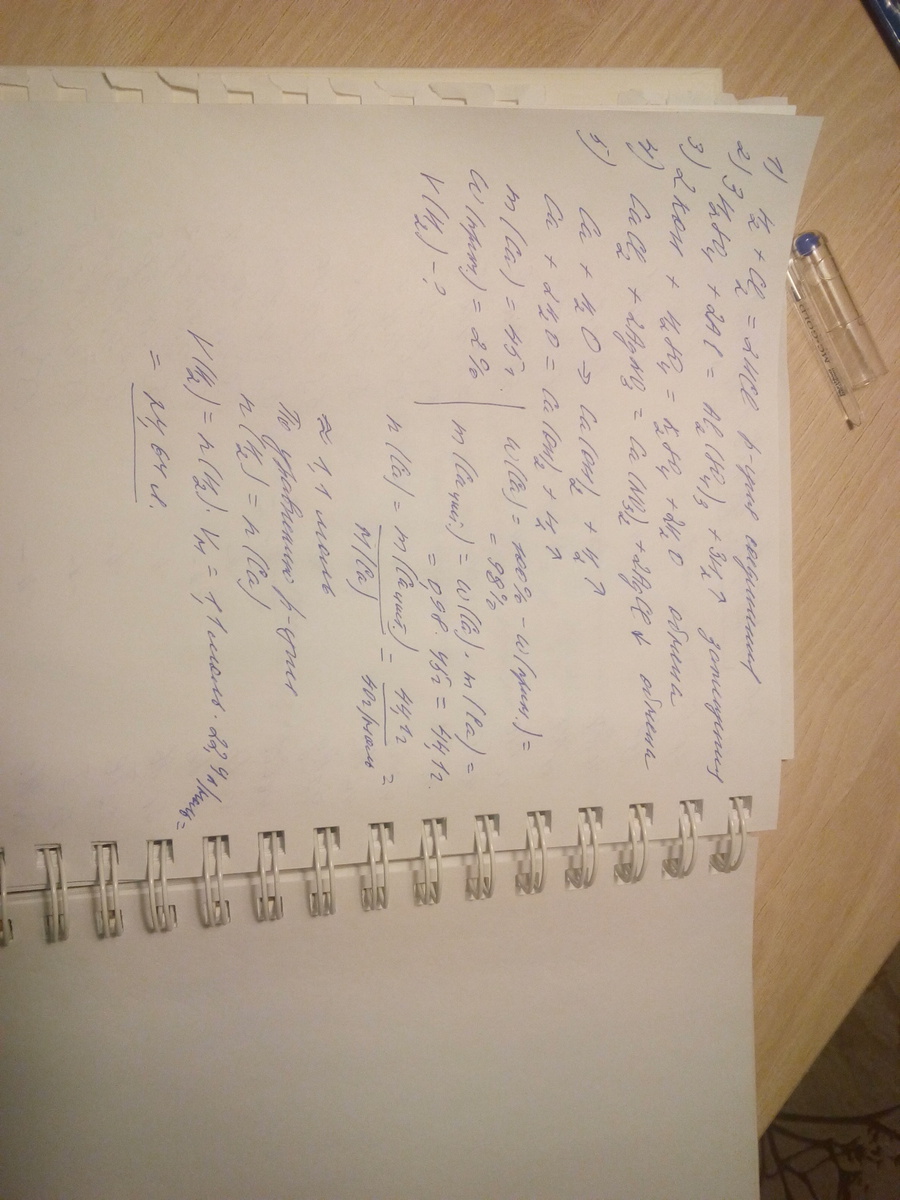 1) H₂ + Cl₂ = 2HCl р-ция соединения
2) 3H₂SO₄ + 2Al = Al₂(SO₄)₃ + 3H₂↑ замещения
3) 2KOH + H₂SO₄ = K₂SO₄ + 2H₂O обмена
4) CaCl₂ + 2AgNO₃ = Ca(NO₃)₂ + 2AgCl↓ обмена
5)
Ca + H₂O → Ca(OH)₂ + H₂↑
Ca + 2H₂O = Ca(OH)₂ + H₂↑
m(Ca) = 45г.
W(прим.) = 2%
V(H₂) - ?
W(Ca) = 100% - W(прим.) =
= 98%
m(Ca чист.) = W(Ca) · m(Ca) =
= 0,98 · 45г = 44,1г.
n(Ca) = m(Ca чист.) / M(Ca) = 44,1г / 40г/моль =
≈ 1,1 моль
По уравнению р-ции
n(H₂) = n(Ca)
V(H₂) = n(H₂) · Vм = 1,1 моль · 22,4 л/моль =
= 24,64 л.